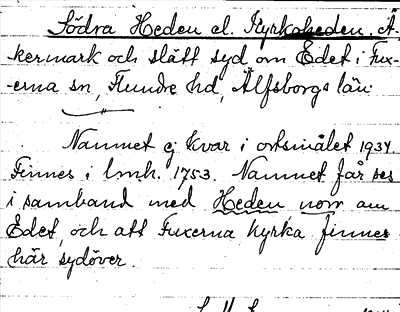 Södra Heden el. Kyrkoheden, Å-
kermark och slätt syd om Edet i Fux-
-erna sn, Flundre hd, Älfsborgs län.
Namnet ej kvar i ortsmålet 1934.
Finnes i lmh. 1753. Namnet får ses
i samband med Heden norr om
Edet, och att Fuxerna kyrka finnes
här sydöver.